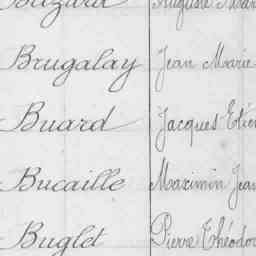 Auguste
Brugalay Jean Marie
Buard Jacques
Bucaille Maximin Jean
Buglet Pierre